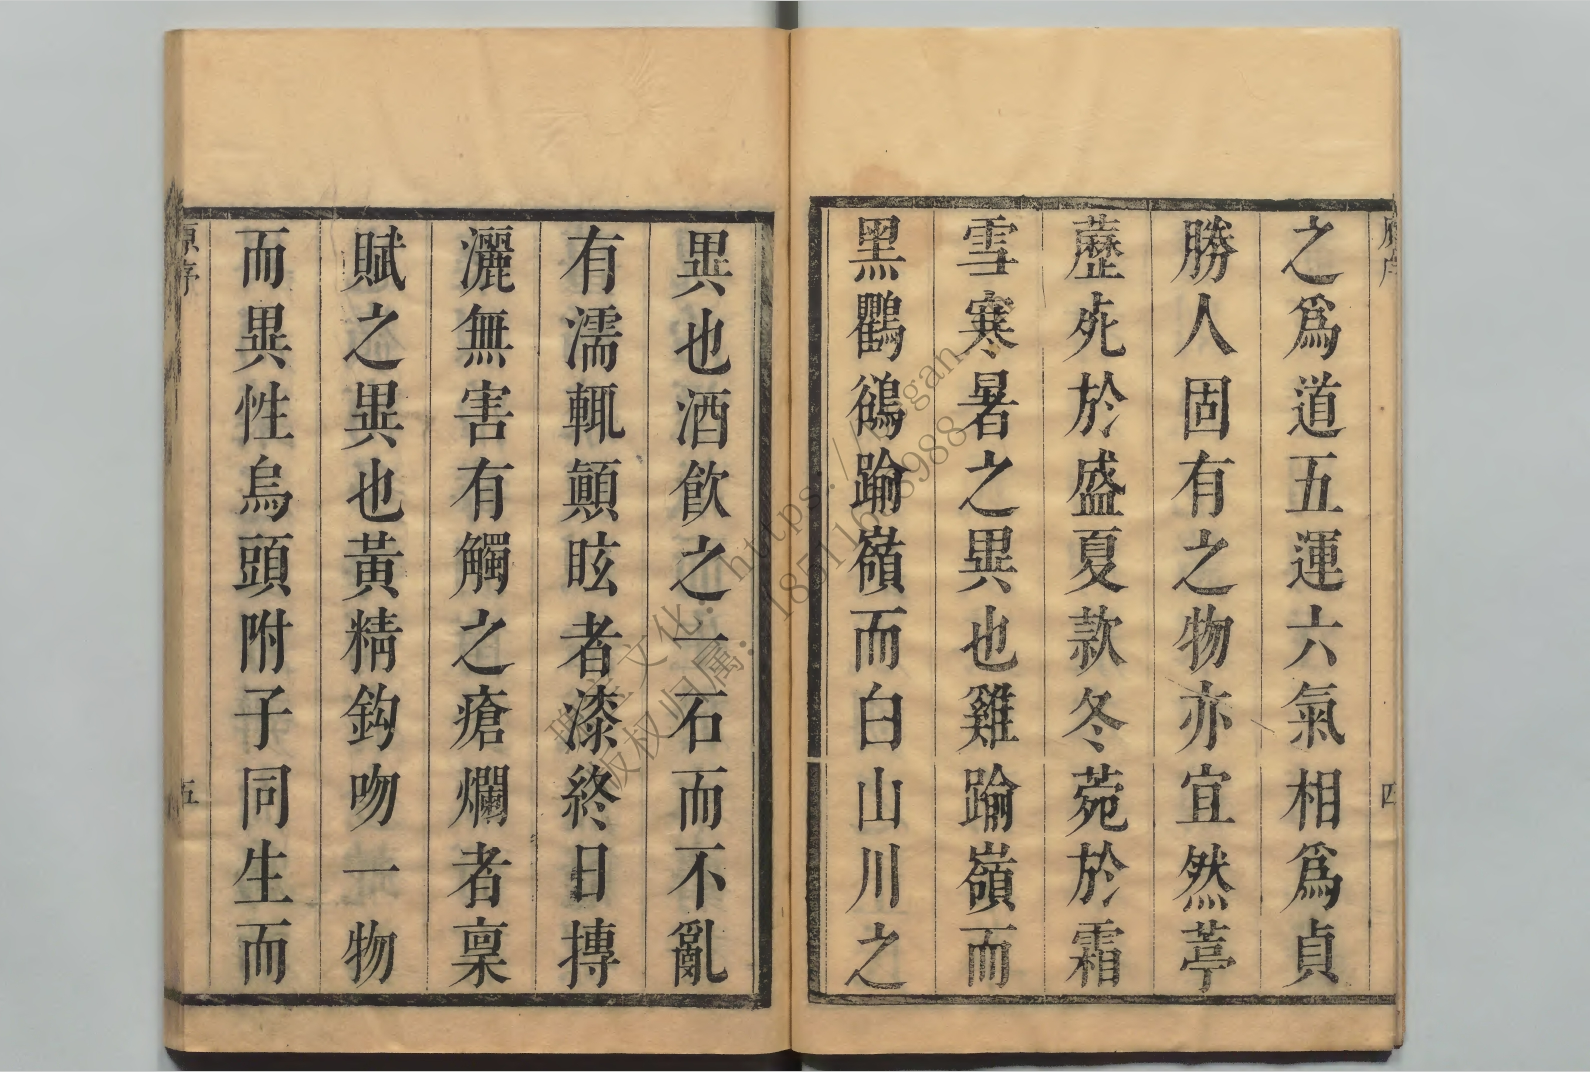 之爲道五運六氣相爲貞
勝人固有之物亦宜然葶
藶死於盛夏款冬菀於霜
雪寒暑之異也雞踰嶺而
黑鸜鵒踰嶺而白山川之
四
異也酒飲之一石而不亂
有濡輒顛眩者漆終日摶
灑無害有觸之瘡爛者稟
賦之異也黃精鈎吻一物
而異性烏頭附子同生而
原序
五
文化:https://
版权归属: